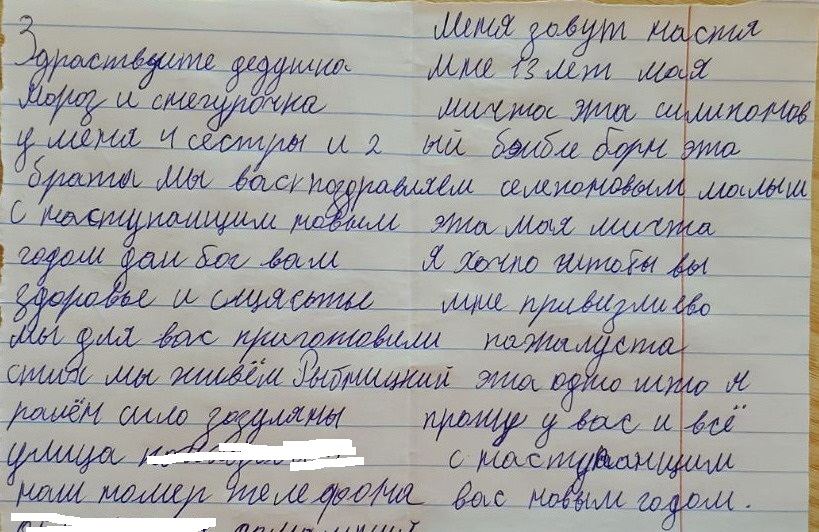 Здраствуите дедушка
Мороз и снегурочка
у меня 4 сестры и 2
браты мы вас поздравляем
с наступаищим новым
годом даи бог вам
здоровье и сщясьтье
мы для вас приготовили
стих мы живём Рыбницкий
раён сило зозуляны
улица
наш номер телефона
Меня зовут настя
мне 13 лет мая
мичта эта силиконов
ый беибе борн эта
селеконовым малыш
эта мая мичта
я хочю штобы вы
мне привизли ево
пожалуста
эта одно што я
прошу у вас и всё
с наступаищим
вас новым годом.